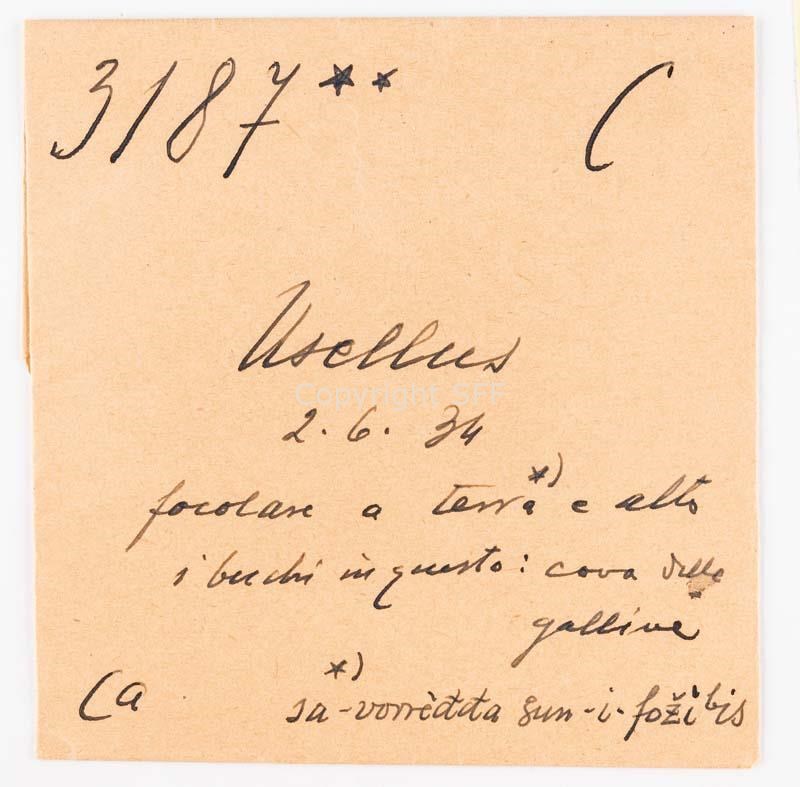 3187** C
Usellus
Copyright SFF
2. 6. 34
focolare a terra *) e alto
i buchi in questo: cova delle
galline
Ca *)
sa-vorrèđđa gun-i-fožibis